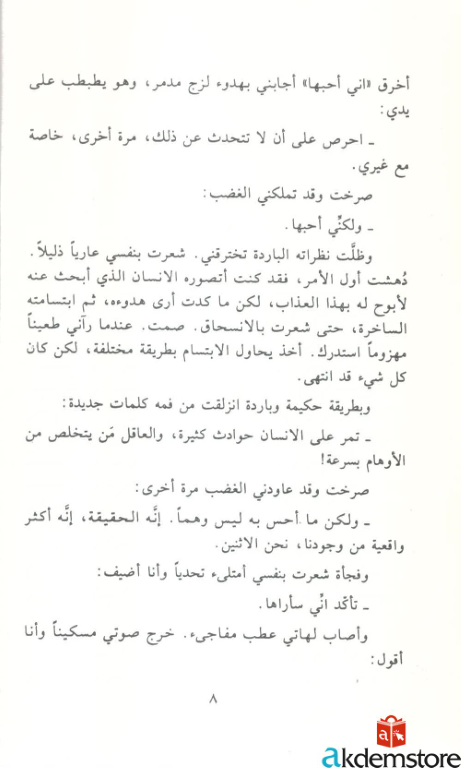 أخرق «اني أحبها» أجابني بهدوء لزج مدمر، وهو يطبطب على
يدي:
ـ احرص على أن لا تتحدث عن ذلك، مرة أخرى، خاصة
مع غيري.
صرخت وقد تملكني الغضب:
ـ ولكنّي أحبها.
وظلَّت نظراته الباردة تخترقني. شعرت بنفسي عارياً ذليلاً.
دُهشت أول الأمر، فقد كنت أتصوره الانسان الذي أبحث عنه
لأبوح له بهذا العذاب، لكن ما كدت أرى هدوءه، ثم ابتسامته
الساخرة، حتى شعرت بالانسحاق. صمت. عندما رآني طعيناً
مهزوماً استدرك. أخذ يحاول الابتسام بطريقة مختلفة، لكن كان
كل شيء قد انتهى.
وبطريقة حكيمة وباردة انزلقت من فمه كلمات جديدة:
ـ تمر على الانسان حوادث كثيرة، والعاقل مَن يتخلص من
الأوهام بسرعة!
صرخت وقد عاودني الغضب مرة أخرى:
ـ ولكن ما أحس به ليس وهماً. إنَّه الحقيقة، إنَّه أكثر
واقعية من وجودنا، نحن الاثنين.
وفجأة شعرت بنفسي أمتلىء تحدياً وأنا أضيف:
ـ تأكّد انّي سأراها.
وأصاب لهاتي عطب مفاجىء. خرج صوتي مسكيناً وأنا
أقول:
٨
akdemstore